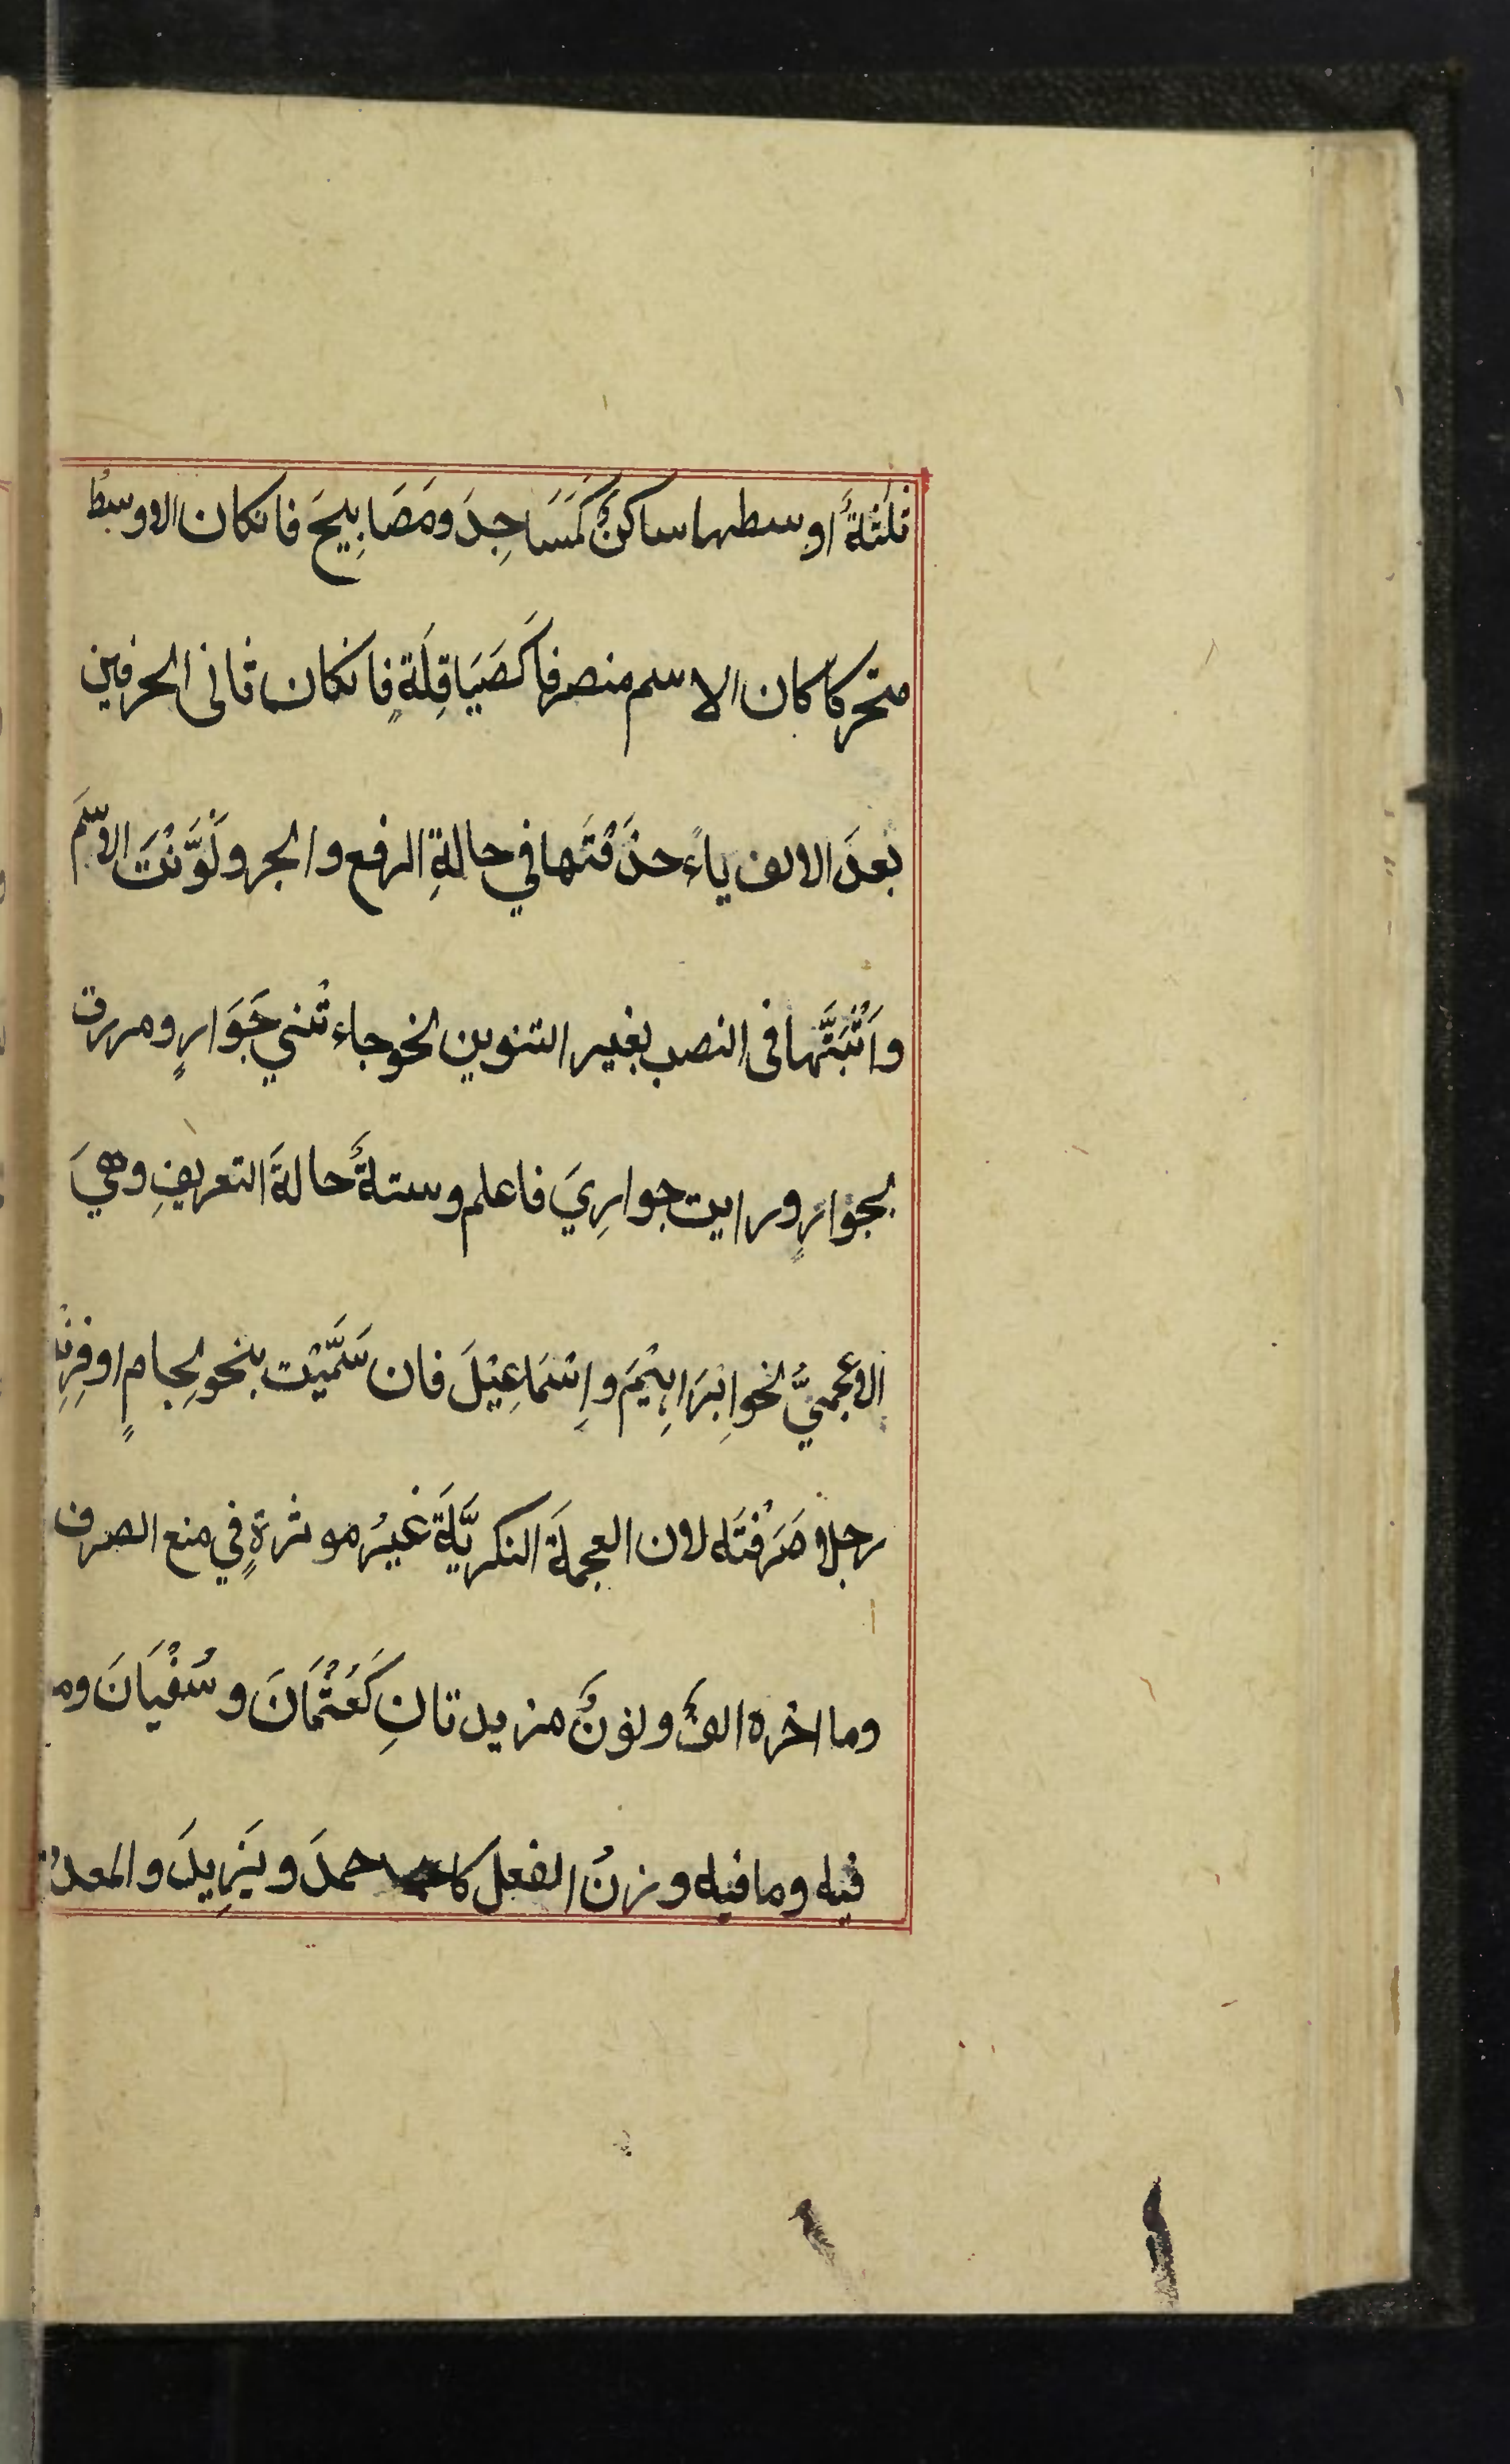 ثلثةٌ اوسطها ساكنٌ كَمَسَاجِدَ ومَصَابِيحَ فانكان الاوسطُ
متحركا كان الاسم منصرفاً كَصَيَاقِلَةٍ فانكان ثانى الحرفين
بعدَ الالف ياءً حذَفْتَها في حالةِ الرفع والجر ونَوَّنْتَ الاسْمَ
واَثْبَتَّها فى النصب بغير التنوين نحو جاءتْني جَوَارٍ ومررت
بجوارٍ ورايت جوارِيَ فاعلم وستةٌ حالةَ التعريفِ وهيَ
الاعجميُّ نحو اِبْرَاهِيْمَ واِسْمَاعِيْلَ فان سَمَّيْت بنحو لِجامٍ او فِرِنْد
رجلا صَرَفْتَه لان العجمةَ النكريَّةَ غيرُ موثرةٍ في منع الصرف
وما اخره الفٌ ونونٌ مزيدتانِ كَعُثْمَانَ وسُفْيَانَ وما
فيه وما فيه وزنُ الفعل كاحمدَ ويَزِيدَ والمعدُ